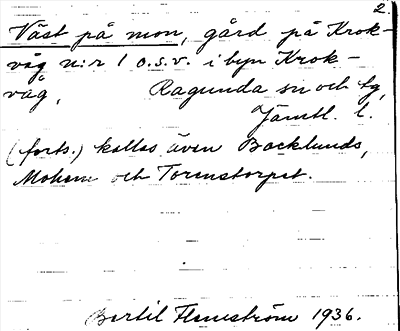 2.
Väst på mon, gård på Krok-
våg n:r 1 o.s.v. i byn Krok-
våg, Ragunda sn och tg,
Jämtl. l.
(forts.) kallas även Backlunds,
Mohem och Tormstorpet.
Bertil Flemström 1936.